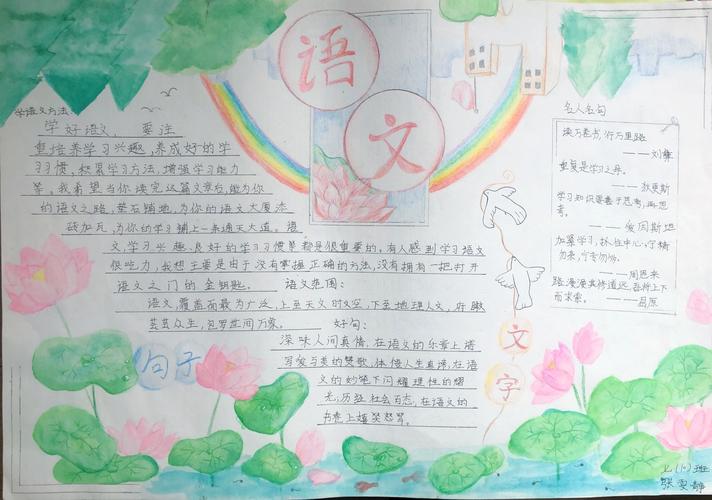 语
文
学语文方法:
学好语文，要注
重培养学习兴趣，养成好的学
习习惯，积累学习方法，增强学习能力
等。我希望当你读完这篇文章后，能为你
的语文之路，垫石铺地，为你的语文大厦添
砖加瓦，为你的学习铺上一条通天大道。语
文学习兴趣、良好的学习习惯是都是很重要的，有人感到学习语文
很吃力，我想主要是由于没有掌握正确的方法，没有拥有一把打开
语文之门的金钥匙。 语文范围:
语文覆盖面最为广泛，上至天文时空，下至地理人文，俯瞰
芸芸众生，包罗世间万象。 好句:
深味人间真情，在语文的乐章上谱
写爱与美的赞歌，体悟人生真谛，在语
文的妙笔下闪耀理性的耀
光，历经社会百态，在语文的
书卷上嬉笑怒骂。
句子
文
字
名人名句
读万卷书，行万里路
——刘彝
重复是学习之母。
——狄更斯
学习知识要善于思考，再思
考。
——爱因斯坦
加紧学习，抓住中心，宁精
勿杂，宁专勿多。
——周恩来
路漫漫其修道远，吾将上下
而求索。——屈原
七(10)班
张雯静